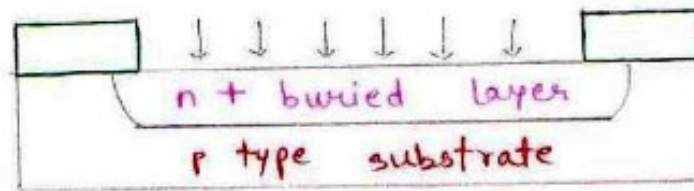 n + buried layer
p type substrate